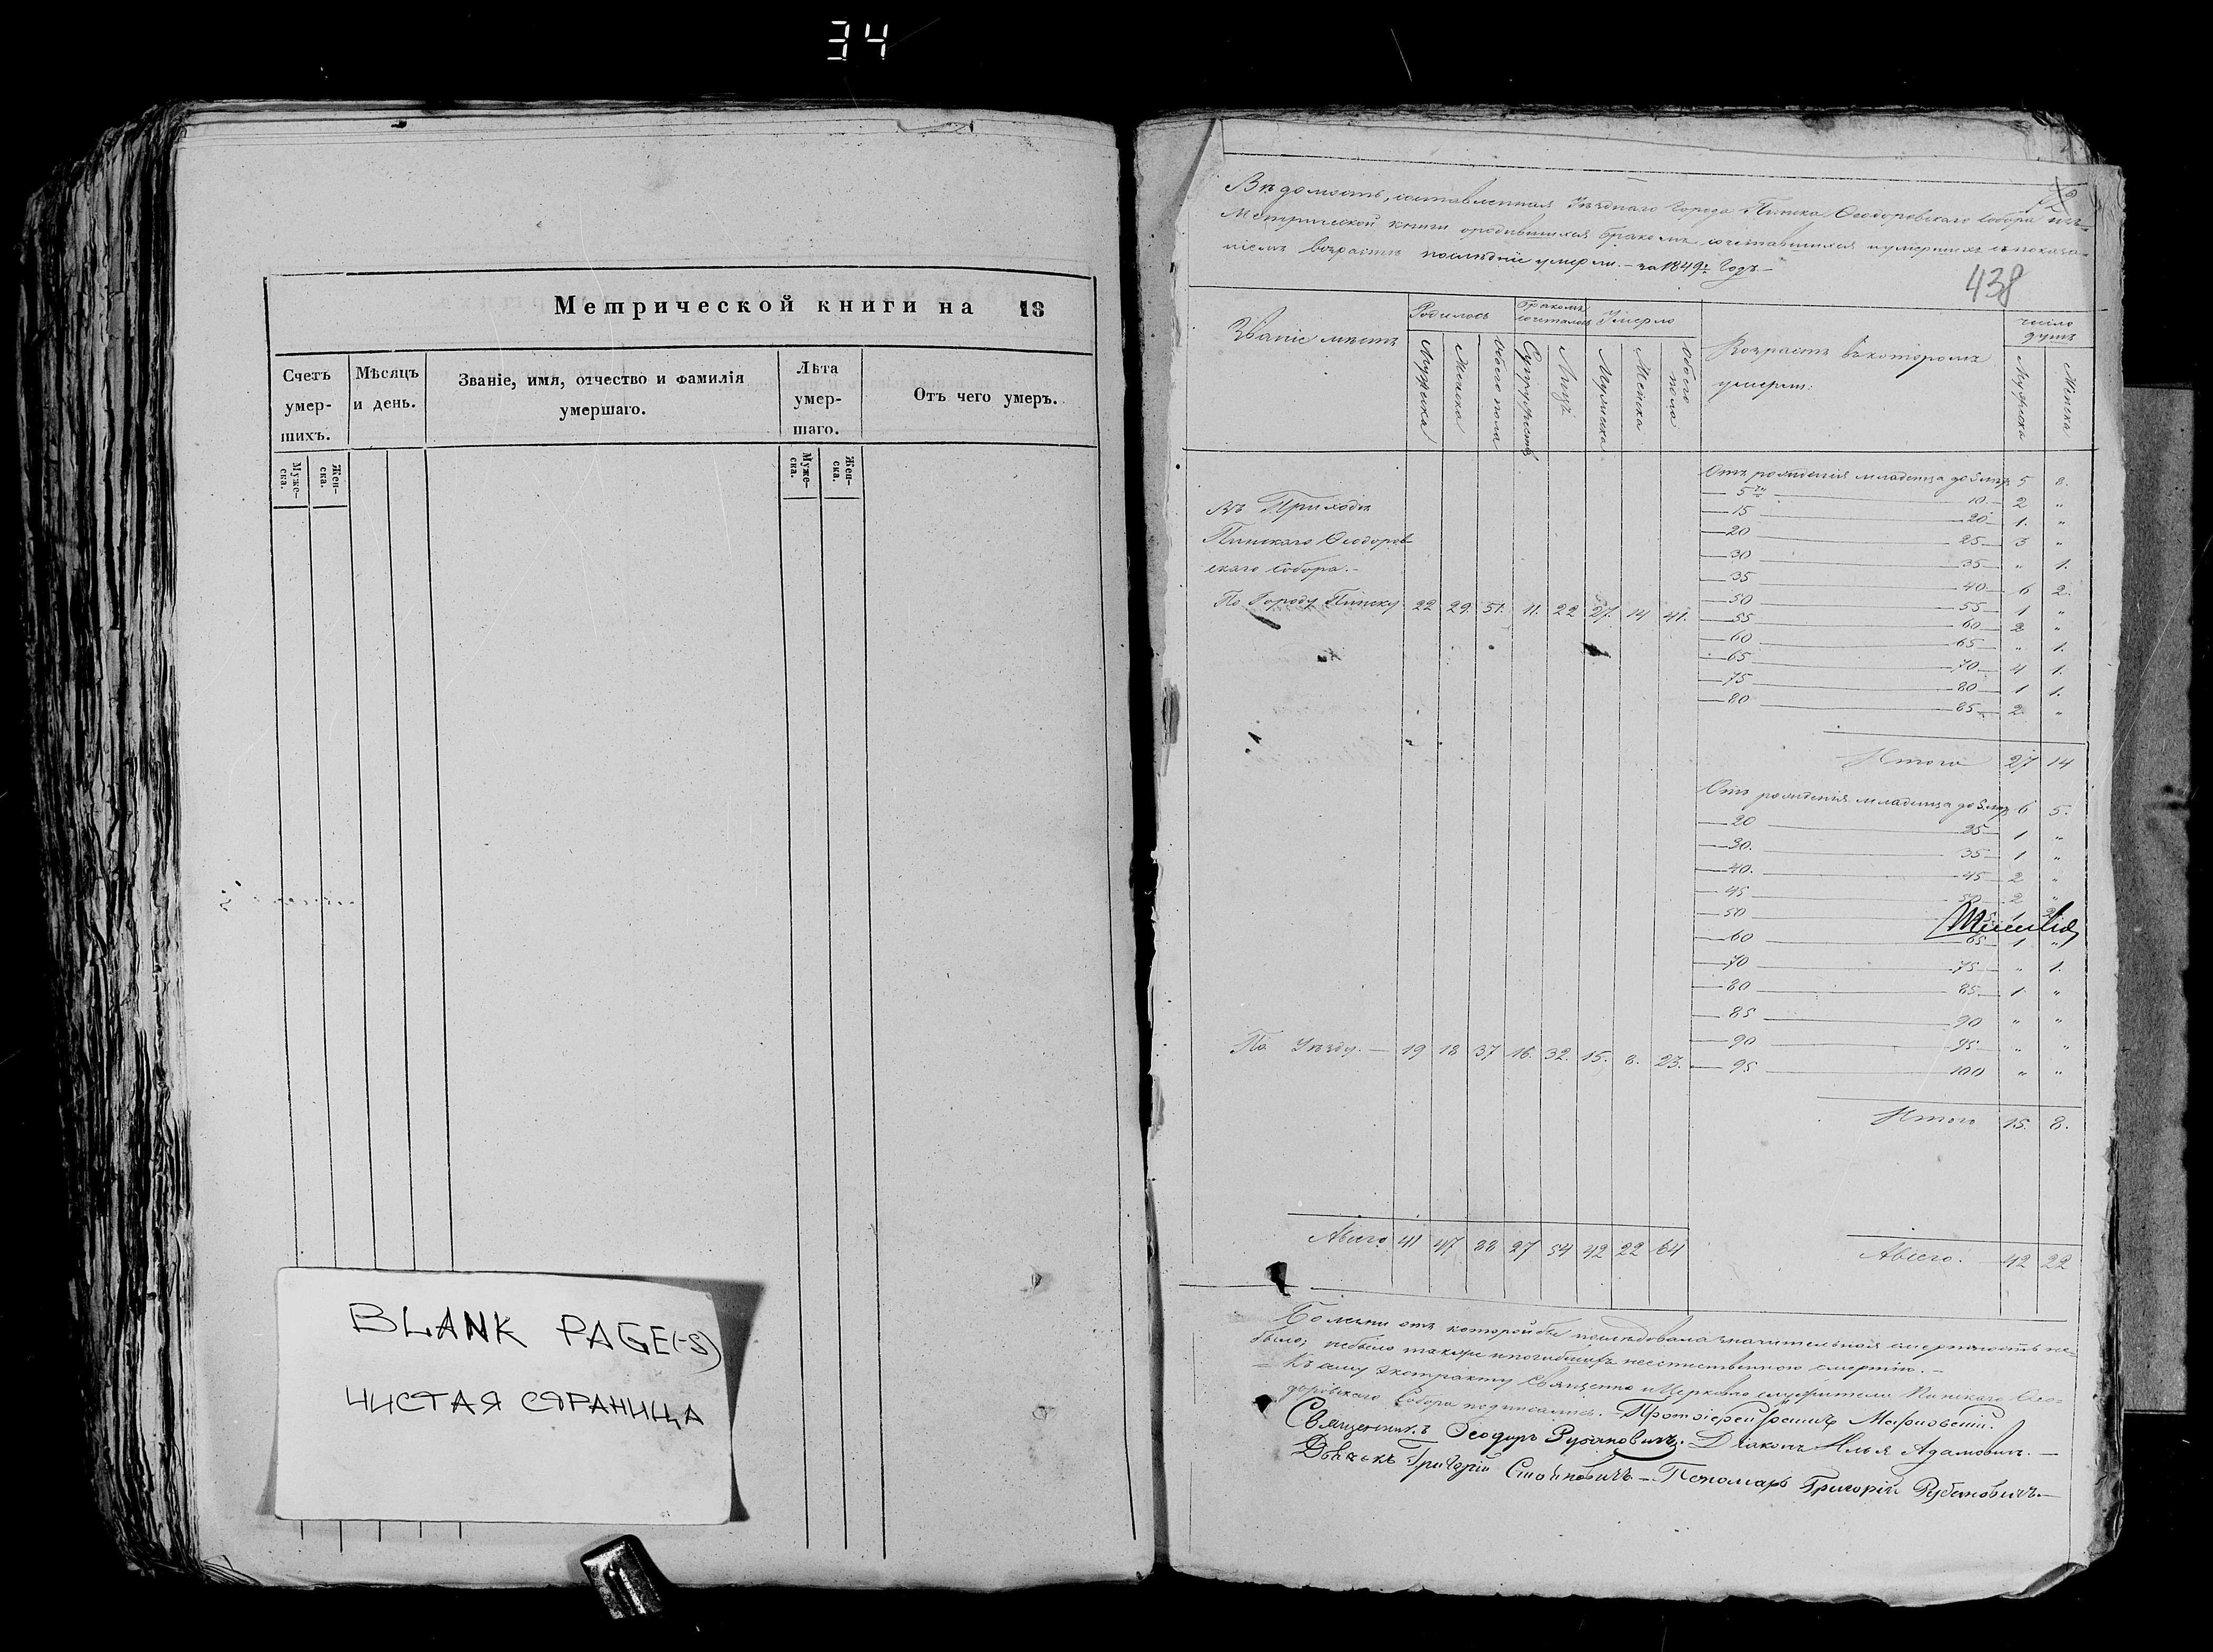 34
Метрической книги на 18
Счетъ умер-шихъ.
Мѣсяцъ и день.
Званіе, имя, отчество и фамилія умершаго.
Лѣта умер-шаго.
Отъ чего умеръ.
Муже-ска.
Жен-ска.
Муже-ска.
Жен-ска.
BLANK PAGE(-S)
ЧИСТАЯ СТРАНИЦА
Вѣдомость, составленная Уѣзднаго Города Пинска Ѳеодоровскаго Собора изъ
Метрической книги о родившихся бракомъ сочетавшихся и умершихъ съ показа-
ніемъ возраста послѣдніе умерли. – за 1849й Годъ –
438
Званіе мѣстъ
Родилось
Бракомъ сочеталось
Умерло
Возрастъ въ которомъ умерли:
число душъ
Мужеска
Женска
обоего пола
Супружествъ
Лицъ
Мужеска
Женска
обоего пола
Мужеска
Женска
Отъ рожденія младенца до 5 лѣтъ 5 8.
5 10 2 "
15 20 1. "
20 25 3 "
30 35 " 1.
35 40 6 2.
50 55 1 "
55 60 2 "
60 65 " 1.
65 70 4 1.
75 80 1 1.
80 85 2. "
Въ Приходѣ
Пинскаго Ѳеодоров-
скаго Собора. –
По Городу Пинску 22 29. 51. 11. 22 27. 14 41.
Итого 27 14
Отъ рожденія младенца до 5 лѣтъ 6 5.
20 25 1 "
30. 35 1 "
40. 45 2 "
45 2 "
50 1
60 65 1 "
70 75 " 1.
80 85 1 "
85 90 " "
90 95 " "
95 100 " "
По Уѣзду. – 19 18 37 16. 32. 15. 8. 23.
Итого 15. 8.
Авсего 41 47 88 27 54 42 22 64
Авсего. 42 22
Болѣзни отъ которой бы послѣдовала значительная смертность не
было; небыло также и погибшихъ неестественною смертію. –
– Къ сему экстракту Священно и Церковно служители Пинскаго Ѳео-
доровскаго Собора подписались. – Протоіерей
Священникъ Ѳеодоръ Рубановичъ. Діаконъ Илья Адамовичъ. –
Дьячекъ Григорій Стояновичъ – Пономарь Григорій Рубановичъ. –